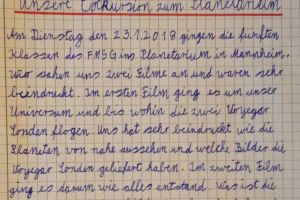 Unsere Exkursion zum Planetarium
Am Dienstag den 23.1.2018 gingen die fünften
Klassen des FMSG ins Planetarium in Mannheim.
Wir sahen uns zwei Filme an und waren sehr
beindruckt. Im ersten Film ging es um unser
Universum und bis wohin die zwei Voyager
Sonden flogen. Uns hat sehr beindruckt wie die
Planeten von nahe aussehen und welche Bilder die
Voyager Sonden geliefert haben. Im zweiten Film
ging es darum wie alles entstand. Was ist die